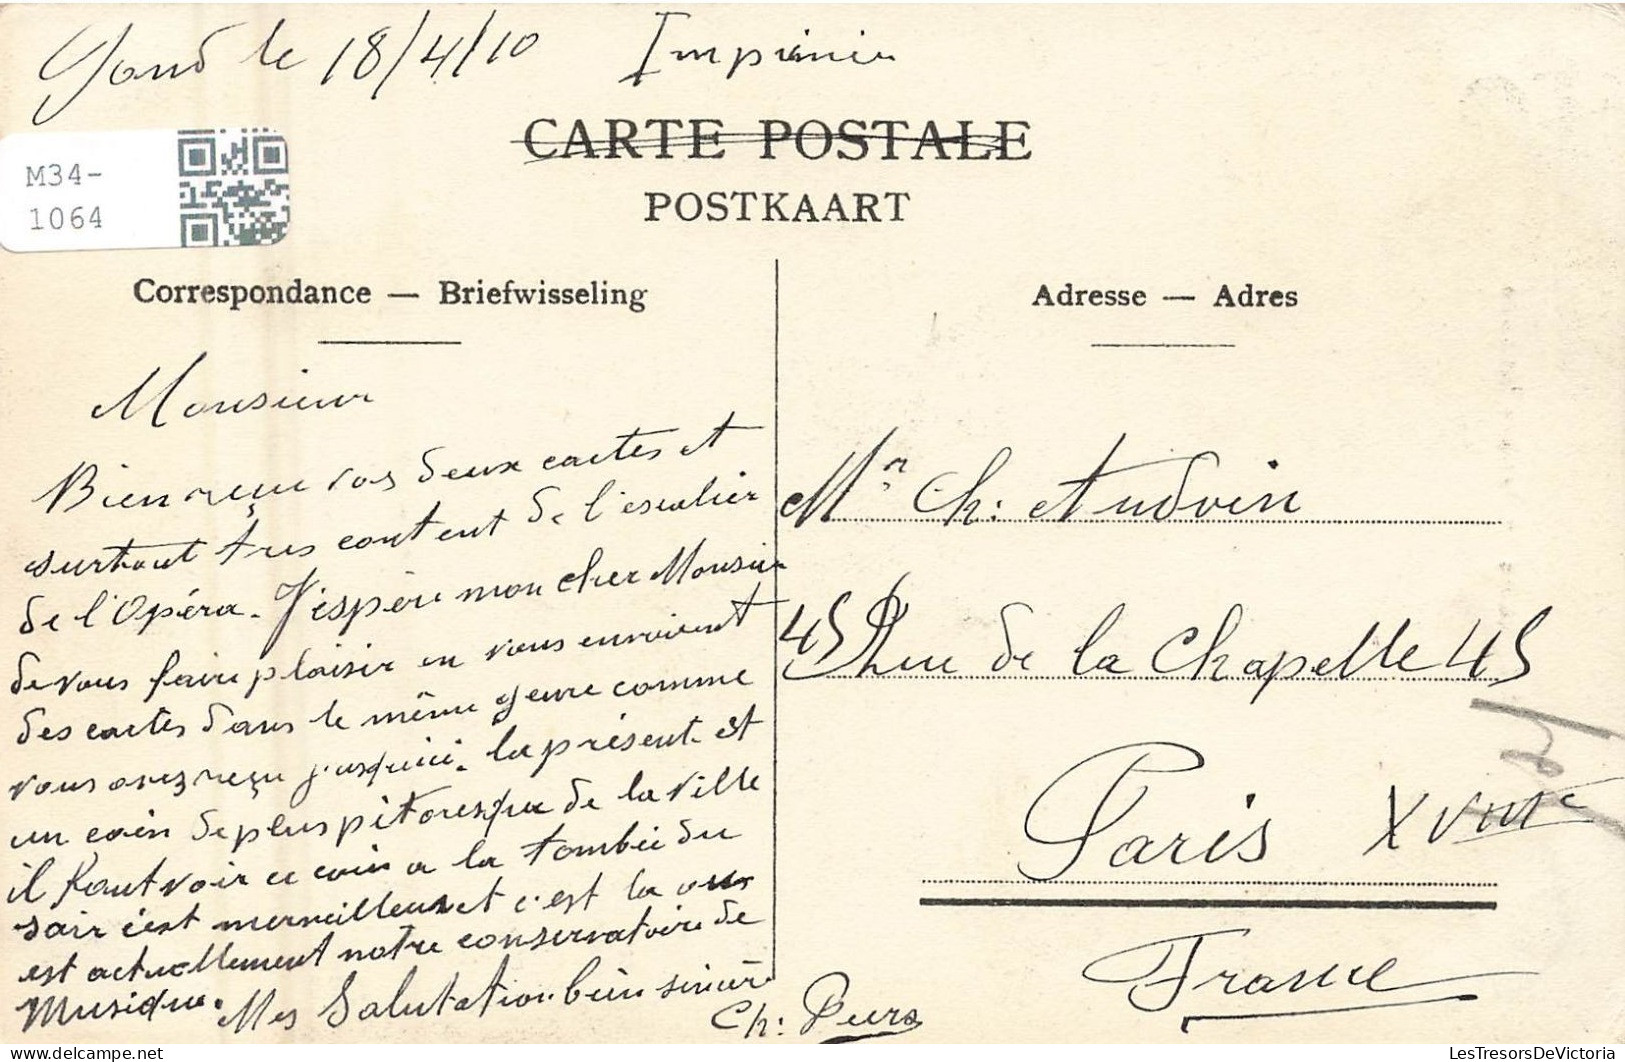 Gand le 18/4/10 Imprimé
CARTE POSTALE
POSTKAART
M34-
1064
Correspondance — Briefwisseling
Monsieur
Bien reçu vos deux cartes et
surtout très content de l'escalier
de l'Opéra. J'espère mon cher Monsieur
de vous faire plaisir en vous envoient
des cartes dans le même genre comme
vous avez reçu jusqu'ici. la présent est
un coin de plus pitoresque de la ville
il faut voir ce coin a la tombée du
soir c'est merveilleux et c'est la
est actuellement notre conservatoire de
Musique. Mes Salutation bien sincère
Ch:
Adresse — Adres
Mr Ch: Audvin
45 Rue de la Chapelle 45
Paris XVIIIme
France
LesTresorsDeVictoria